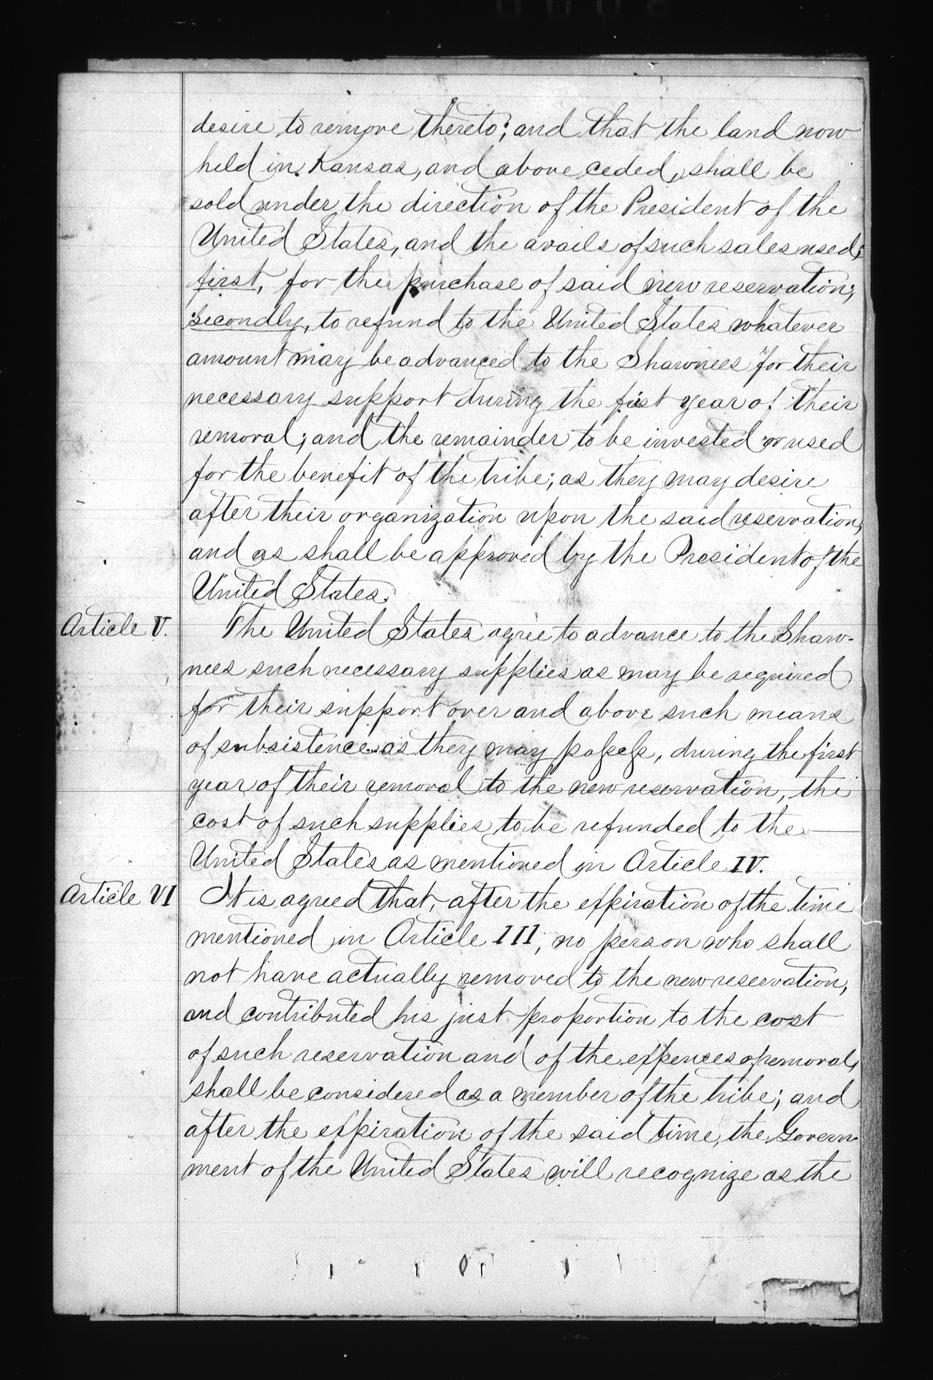 desire to remove thereto; and that the land now
held in Kansas, and above ceded, shall be
sold under the direction of the President of the
United States, and the avails of such sales used;
first, for the purchase of said new reservation;
secondly, to refund to the United States whatever
amount may be advanced to the Shawnees for their
necessary support during the first year of their
removal; and the remainder to be invested or used
for the benefit of the tribe; as they may desire
after their organization upon the said reservation,
and as shall be approved by the President of the
United States.
Article V. The United States agree to advance to the Shaw-
nees such necessary supplies as may be required
for their support over and above such means
of subsistence as they may possess, during the first
year of their removal to the new reservation, the
cost of such supplies to be refunded to the
United States as mentioned in Article IV.
Article VI It is agreed that, after the expiration of the time
mentioned in Article III, no person who shall
not have actually removed to the new reservation,
and contributed his just proportion to the cost
of such reservation and of the expences of removal,
shall be considered as a member of the tribe; and
after the expiration of the said time, the Govern-
ment of the United States will recognize as the